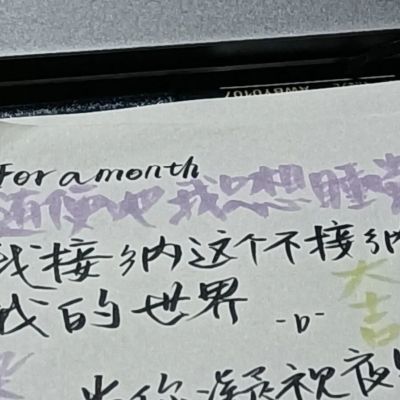 For a month
随便吧我只想睡觉
我接纳这个不接纳
我的世界
-D-
大吉
当你凝视夜